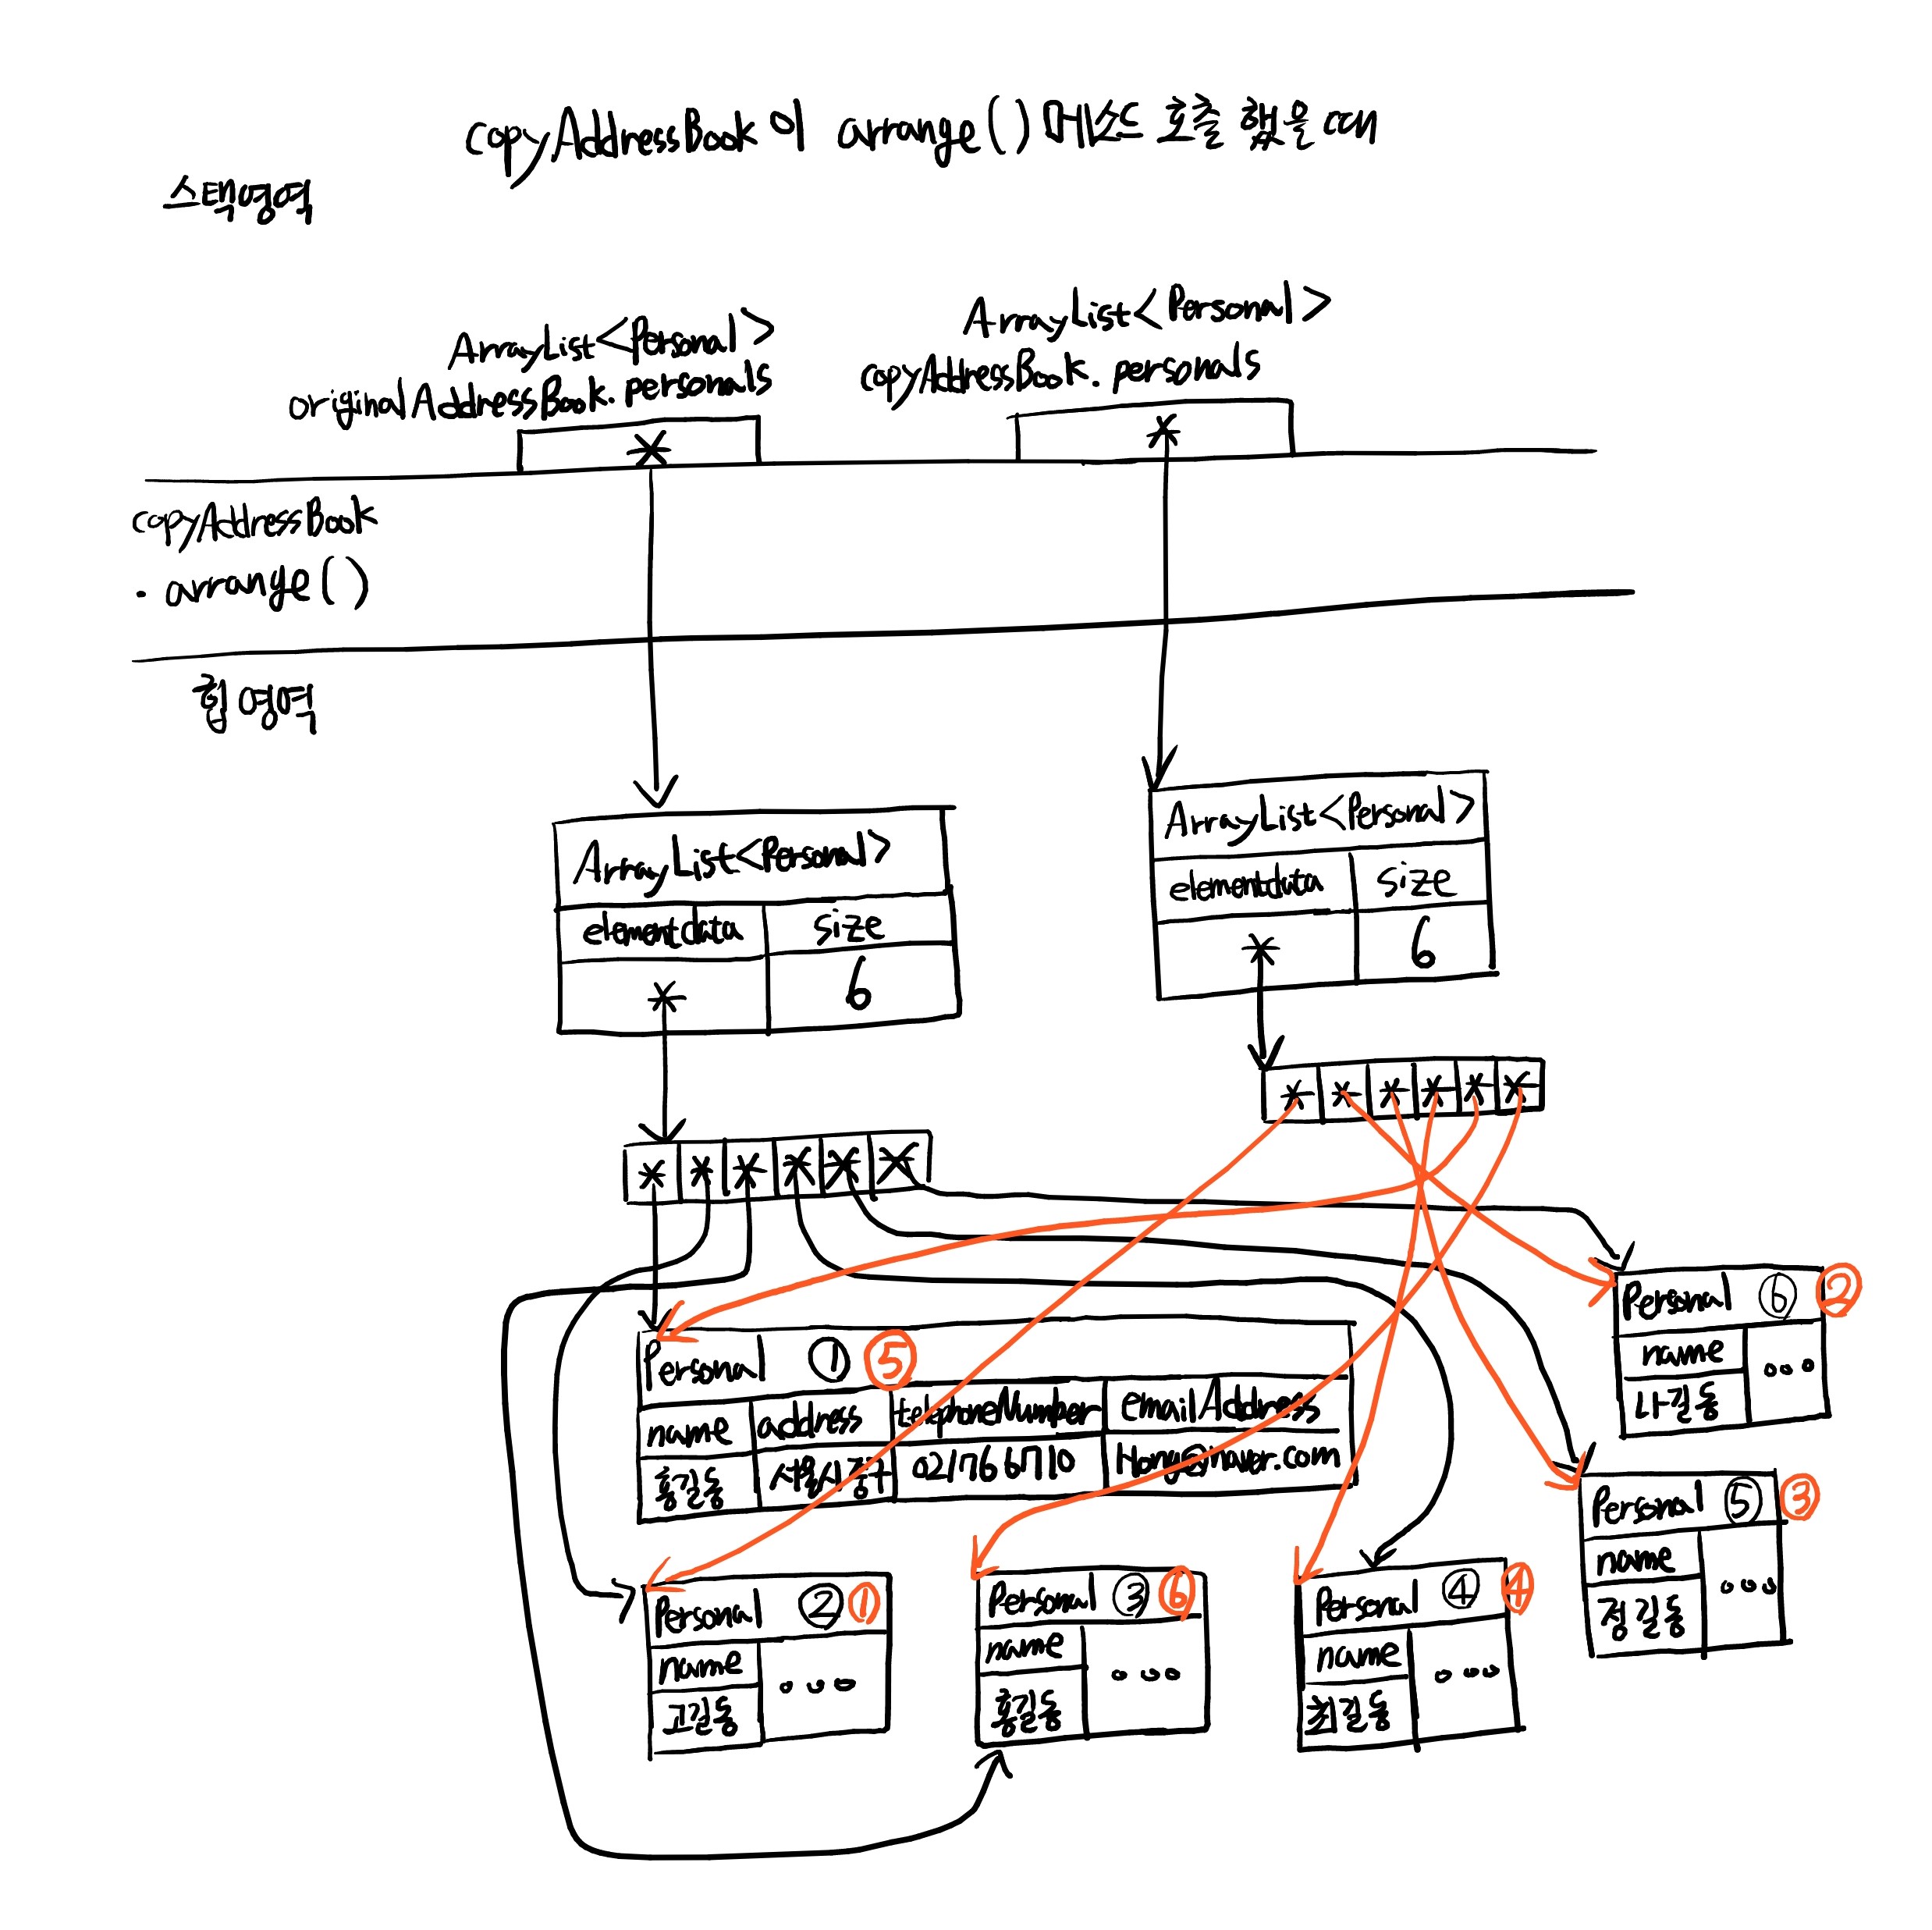 copyAddressBook이 arrange()메소드 호출 했을 때
스택영역
ArrayList<Personal>
originalAddressBook.personals
*
ArrayList<Personal>
copyAddressBook.personals
*
copyAddressBook
.arrange()
힙영역
ArrayList<Personal>
elementdata size
* 6
ArrayList<Personal>
elementdata size
* 6
* * * * * *
* * * * * *
Personal ⑥ ②
name ...
나길동
Personal ① ⑤
name address telephoneNumber emailAddress
홍길동 서울시중구 021766710 Hong@naver.com
Personal ⑤ ③
name ...
정길동
Personal ② ①
name ...
고길동
Personal ③ ⑥
name ...
홍길동
Personal ④ ④
name ...
최길동